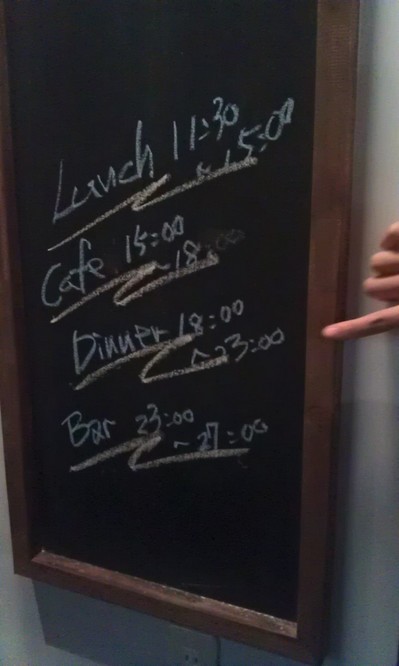 Lunch 11:30
~15:00
Cafe 15:00
~18:00
Dinner 18:00
~23:00
Bar 23:00
~27:00